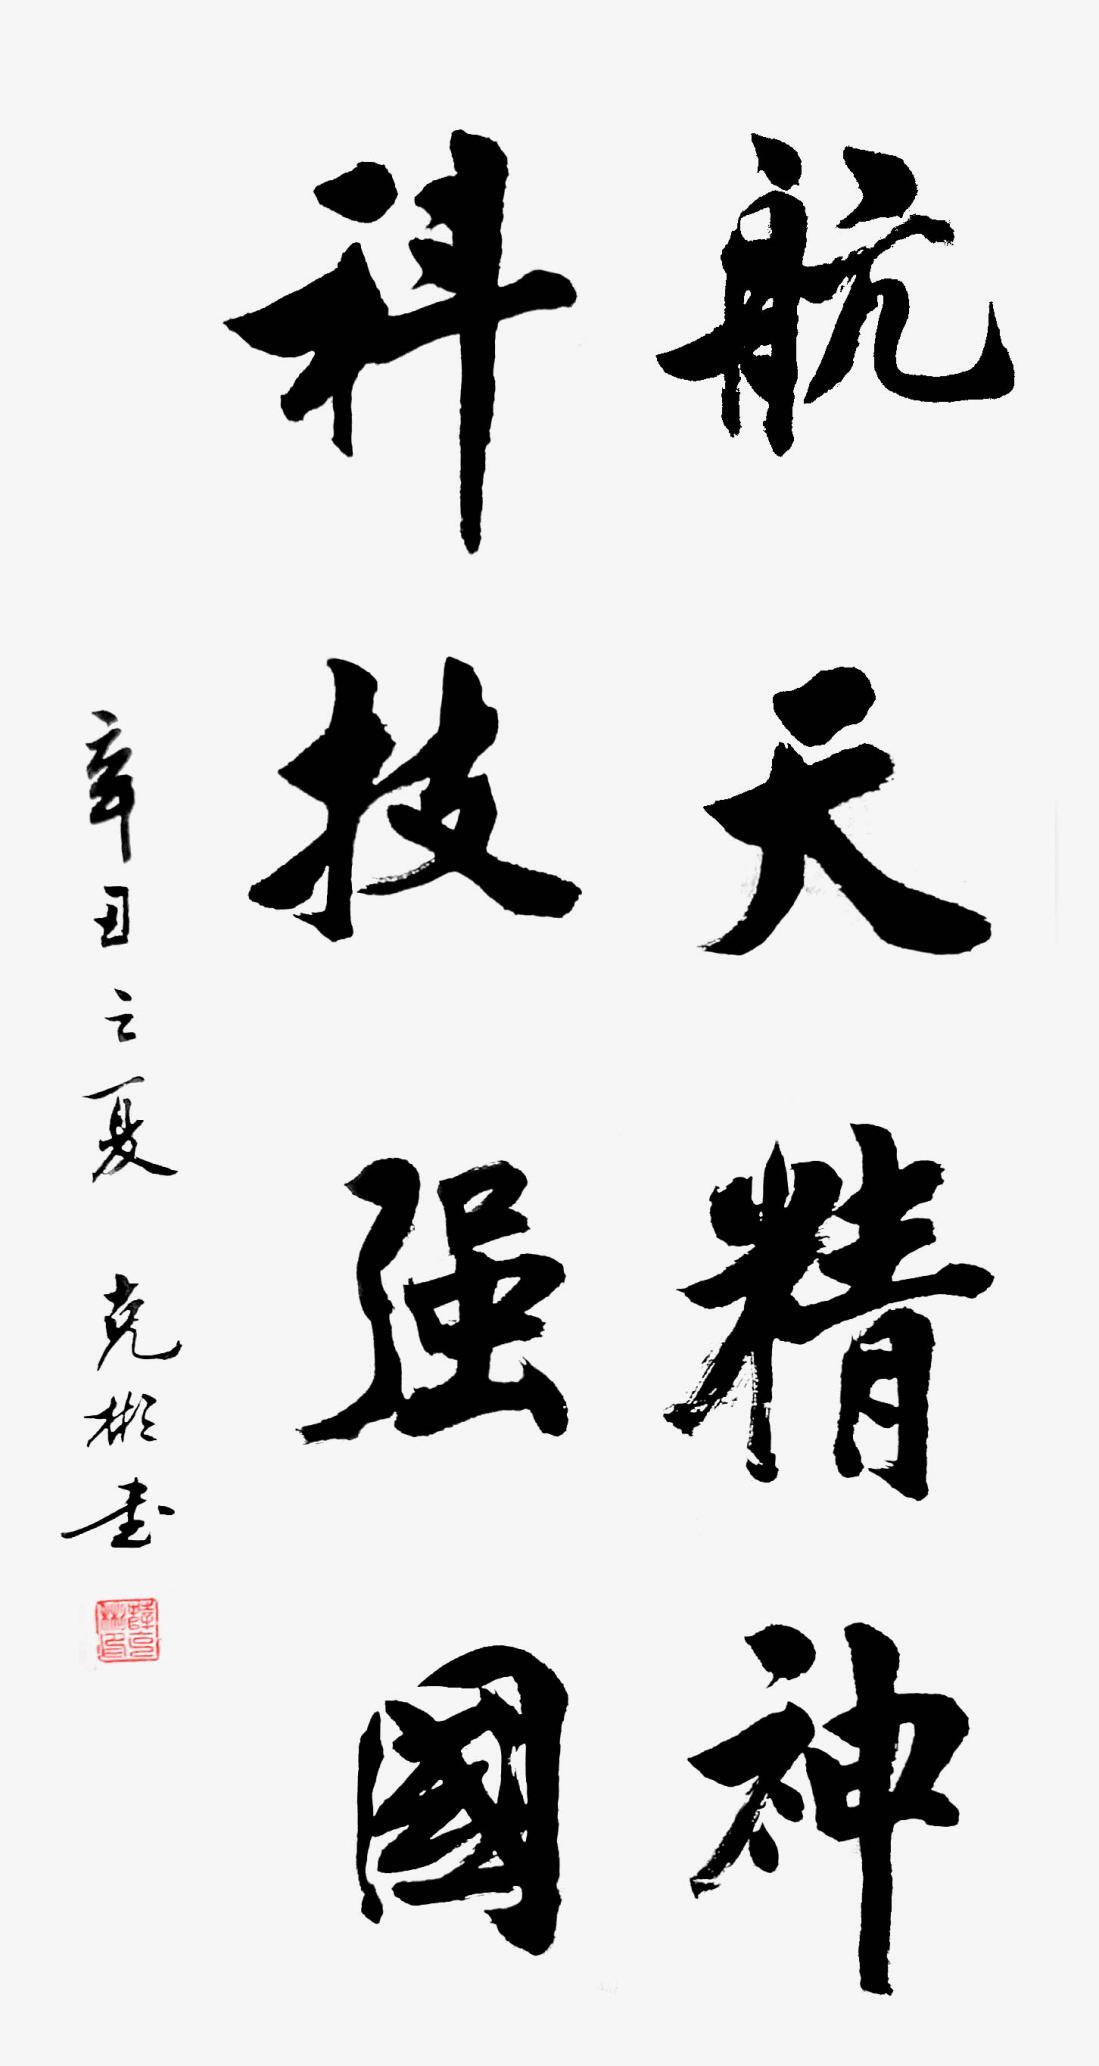 航天精神
科技强國
辛丑之夏 克彬书